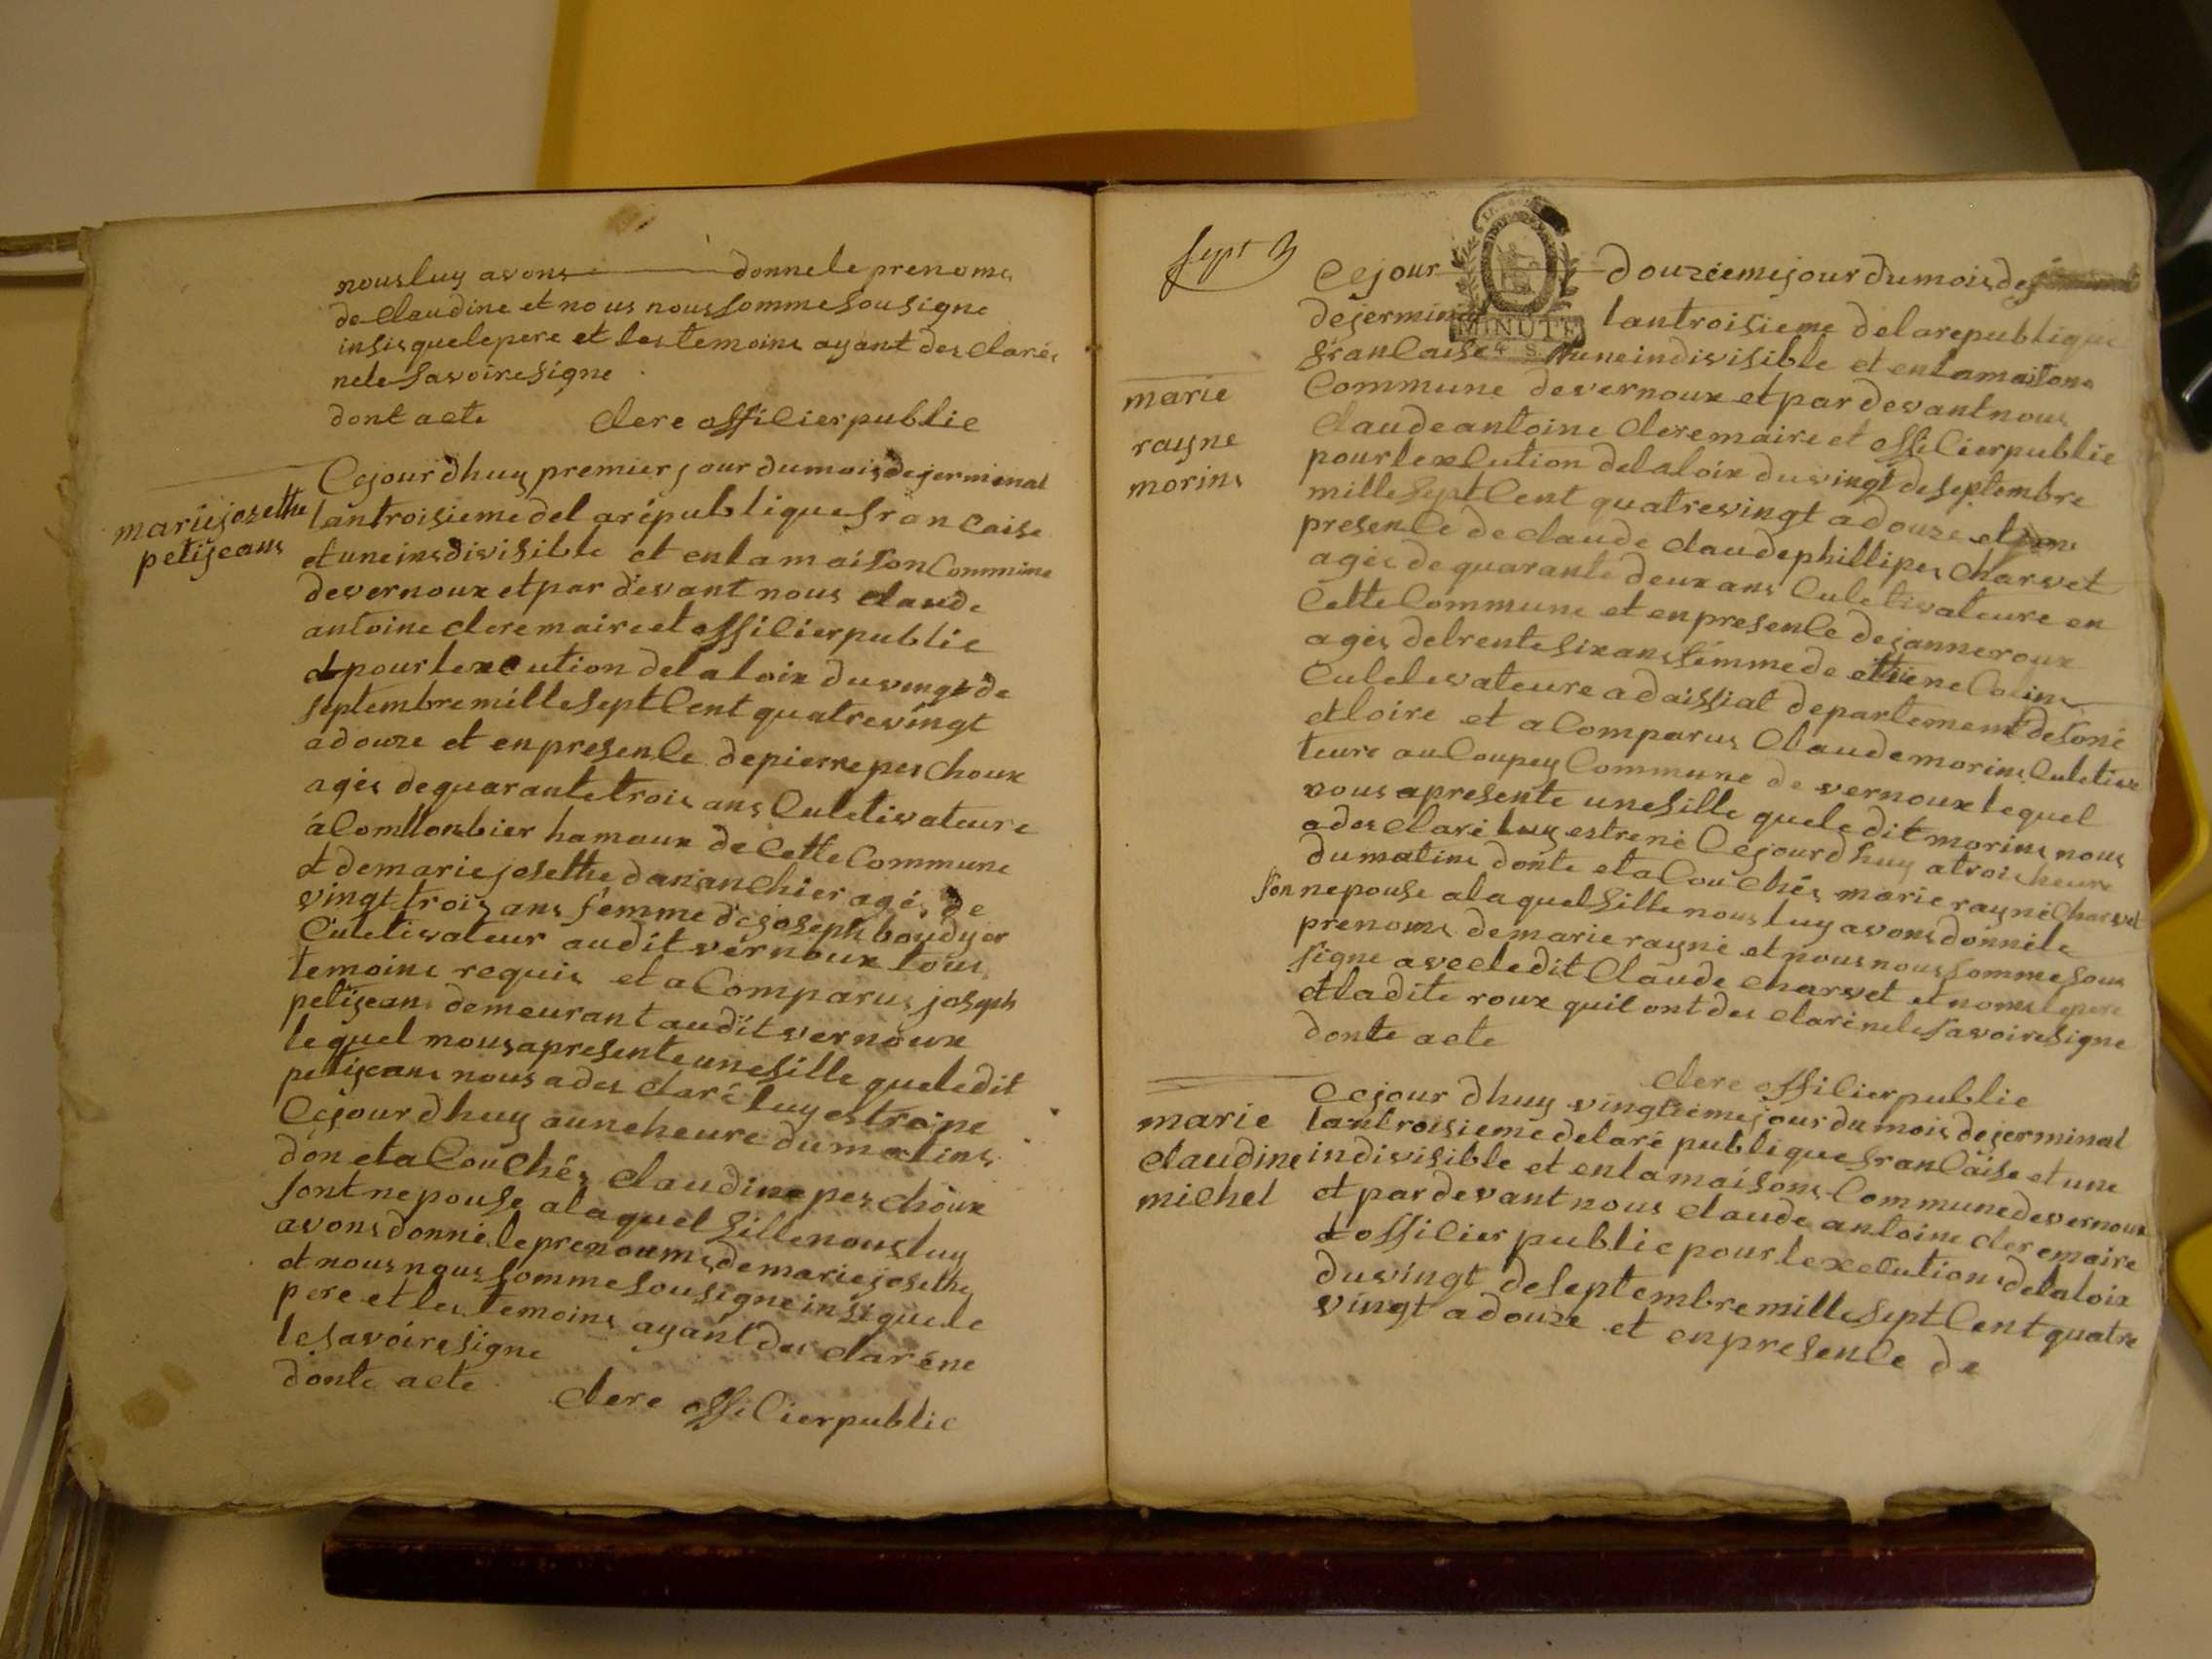 nous luy avons donne le prenoms
de Claudine et nous nous somme sousigne
insis que le pere et les temoins ayant des clarés
ne le savoire signe
dont acte clere offilier public
marie josethe
petijeans
Cejour dhuy premier jour du mois de jerminal
lan troisieme de la republique francaise
et une insdivisible et en la maison Commune
de vernoux et par devant nous claude
antoine clere maire et offilier public
et pour lexecution de la loix du vingt de
septembre mille sept Cent quatre vingt
a douze et en presence de pierre peschoux
agés de quarante trois ans Culetivateure
á Comllonbier hamaux de Cette Commune
et de marie josethe dananchier agés de
vingt trois ans femme de joseph boudyer
Culetivateur au dit vernoux tous
temoins requis et a Comparus joseph
petijeans demeurant audit vernoux
lequel nous a presente une fille que le dit
petijeans nous a des claré luy estre ne
Cejour dhuy a une heure du matins
don et a Couchés Claudine peschoux
sont nepouse a la quel fille nous luy
avons donné le prenoums de marie josethe
et nous nous somme sousigne insi que le
pere et les temoins ayant des claré ne
le savoire signe
donte acte clere offilier public
sept
Cejour douzieme jour du mois de
de jerminal lan troisieme de la republique
MINUTE
4 S.
francaise une indivisible et en la maisons
marie
rayne
morins
Commune de vernoux et par devant nous
Claude antoine clere maire et offilier public
pour lexecution de la loix du vingt de septembre
mille sept Cent quatre vingt a douze et en
presence de claude claude phillipes charvet
agés de quarante deux ans Culetivateure en
Cette Commune et en presence de janne roux
agés de trente six ans femme de ettiene Colins
Culetevateure a daissiat departement de sone
et loire et a Comparus Claude morins Culetiva
teure au Coupey Commune de vernoux lequel
nous a presente une fille que le dit morins nous
a des claré luy estre né Cejourdhuy a trois heure
du matins donte et a Couchés marie rayné Charvet
son nepouse a la quel fille nous luy avons donné le
prenoms de marie rayné et nous nous somme sous
signe avec ledit Claude charvet et noms le pere
et la dite roux quil ont des claré ne le savoire signe
donte acte
clere offilier public
marie
claudine
michel
Cejour dhuy vingtiéme jour du mois de jerminal
lan troisieme de la ré publique francaise et une
indivisible et en la maisons Commune de vernoux
et par devant nous claude antoine clere maire
et offilier public pour lexecutions de la loix
du vingt de septembre mille sept Cent quatre
vingt a douze et en presence de